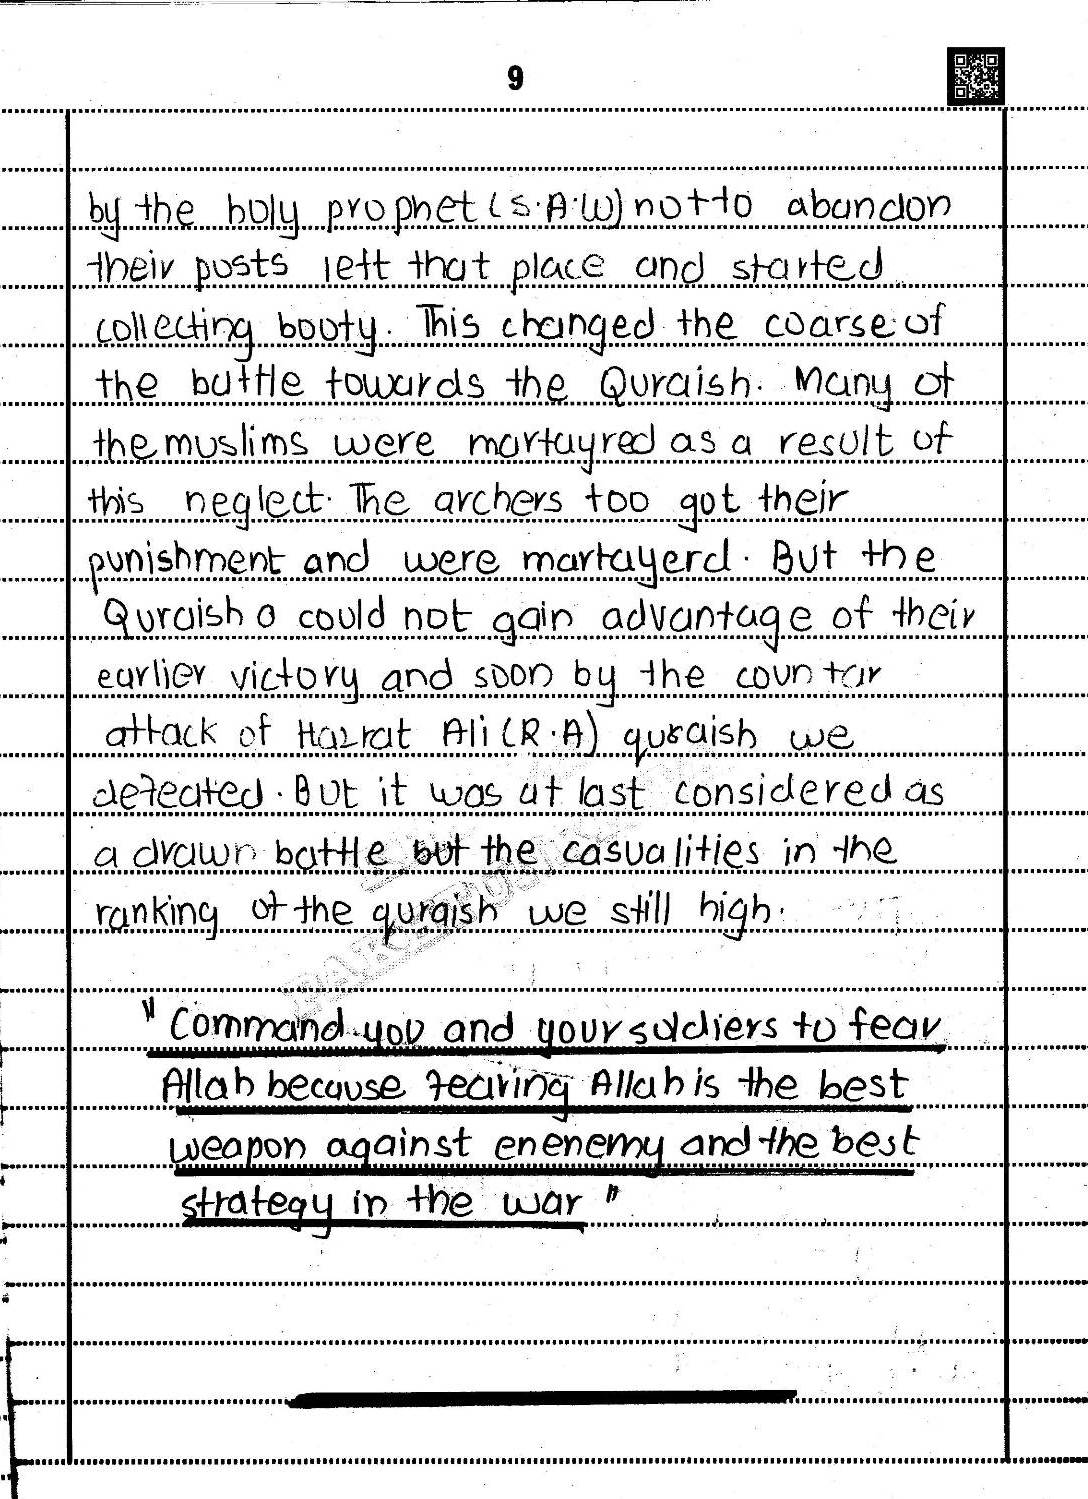 9
by the holy prophet (S.A.W) not to abandon
their posts left that place and started
collecting booty. This changed the coarse of
the battle towards the Quraish. Many of
the muslims were martayred as a result of
this neglect. The archers too got their
punishment and were martayerd. But the
Quraish o could not gain advantage of their
earlier victory and soon by the countar
attack of Hazrat Ali (R.A) quraish we
defeated. But it was at last considered as
a drawn battle but the casualities in the
ranking of the quraish we still high.
"Command you and your soldiers to fear
Allah because fearing Allah is the best
weapon against enenemy and the best
strategy in the war"